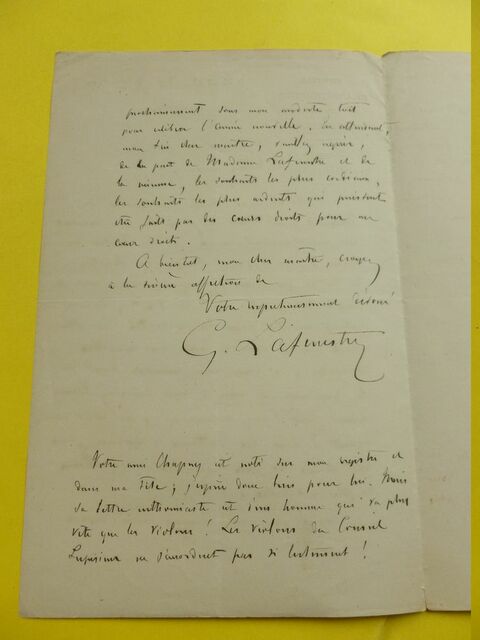 prochainement sous mon modeste toit
pour célébrer l'année nouvelle. En attendant,
mon cher maître, veuillez agréer,
de la part de Madame Lafenestre et de
la mienne, les souhaits les plus cordiaux,
les souhaits les plus ardents qui puissent
être faits par des cœurs droits pour un
cœur droit.
A bientôt, mon cher maître, croyez
à la sincère affection de
Votre respectueusement dévoué
G. Lafenestre
Votre ami Chapuy est noté sur mon registre et
dans ma tête ; j'espère donc bien pour lui. Mais
sa lettre enthousiaste est d'un homme qui va plus
vite que les violons ! Les violons du Conseil
Supérieur ne s'accordent pas si lestement !